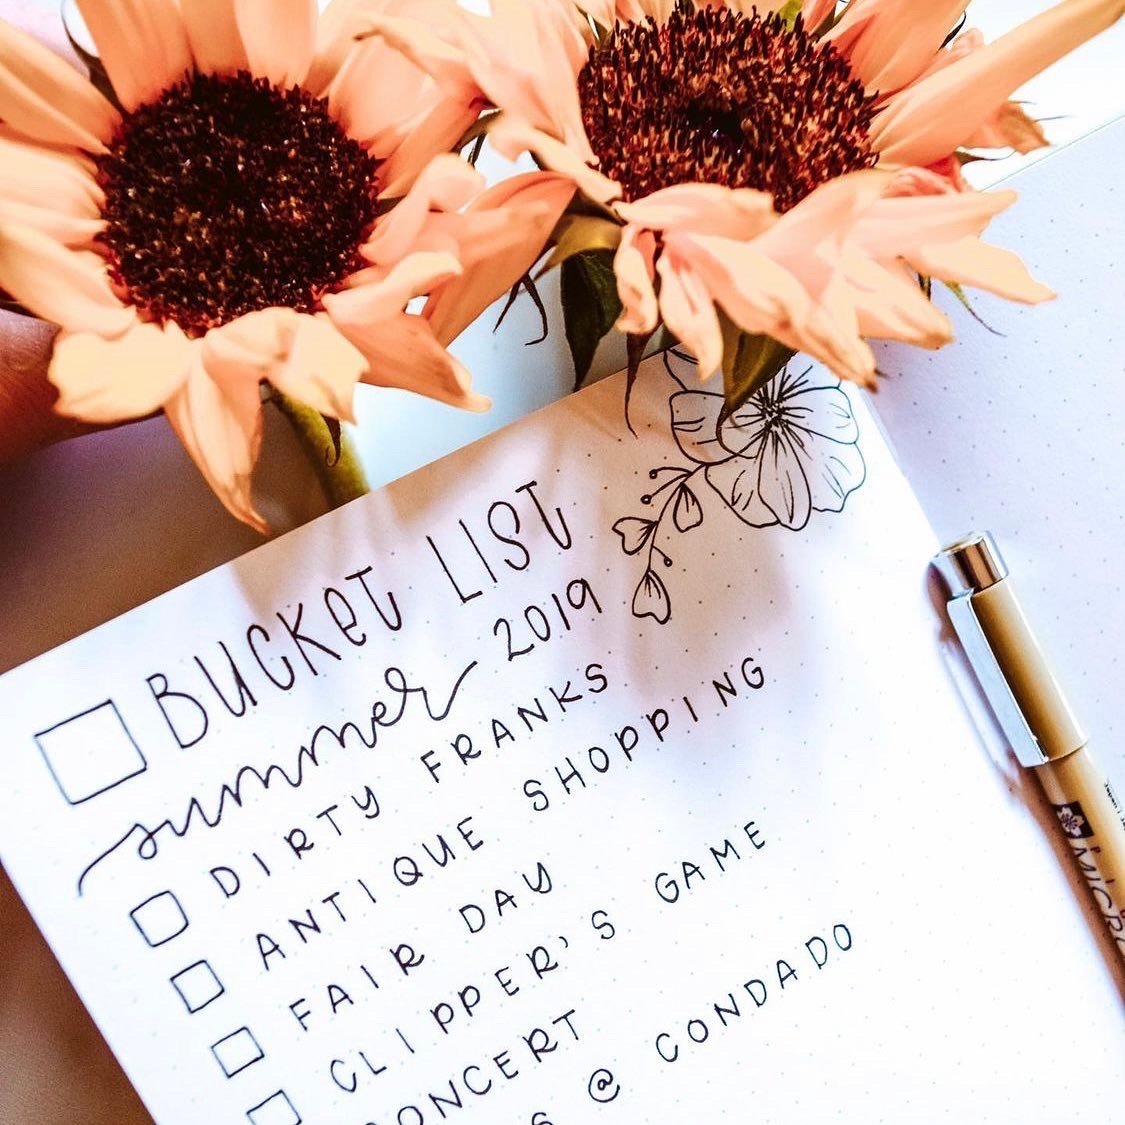 BUCKET LIST
summer 2019
DIRTY FRANKS
ANTIQUE SHOPPING
FAIR DAY
CLIPPER'S GAME
CONCERT
@ CONDADO
MICRO